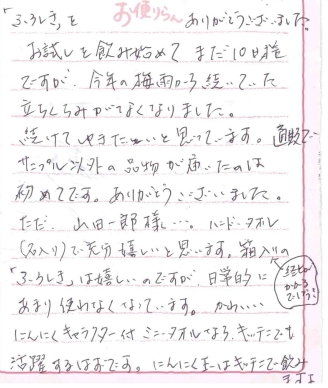 お便りらん
「ふろしき」を ありがとうございました。
お試しを飲み始めて まだ10日程
ですが、今年の梅雨から続いていた
立ちくらみがなくなりました。
続けてゆきたいと思っています。通販で
サンプル以外の品物が届いたのは
初めてです。ありがとうございました。
ただ、山田一郎様…。ハンドタオル
(名入り)で充分嬉しいと思います。箱入りの
経費が
かかる
でしょう!
「ふろしき」は嬉しいのですが、日常的に
あまり使わなくなっています。かわいい
にんにくキャラクター付ミニタオルなら、キッチンでも
活躍するはずです。にんにく玉はキッチンで飲み
ますよ